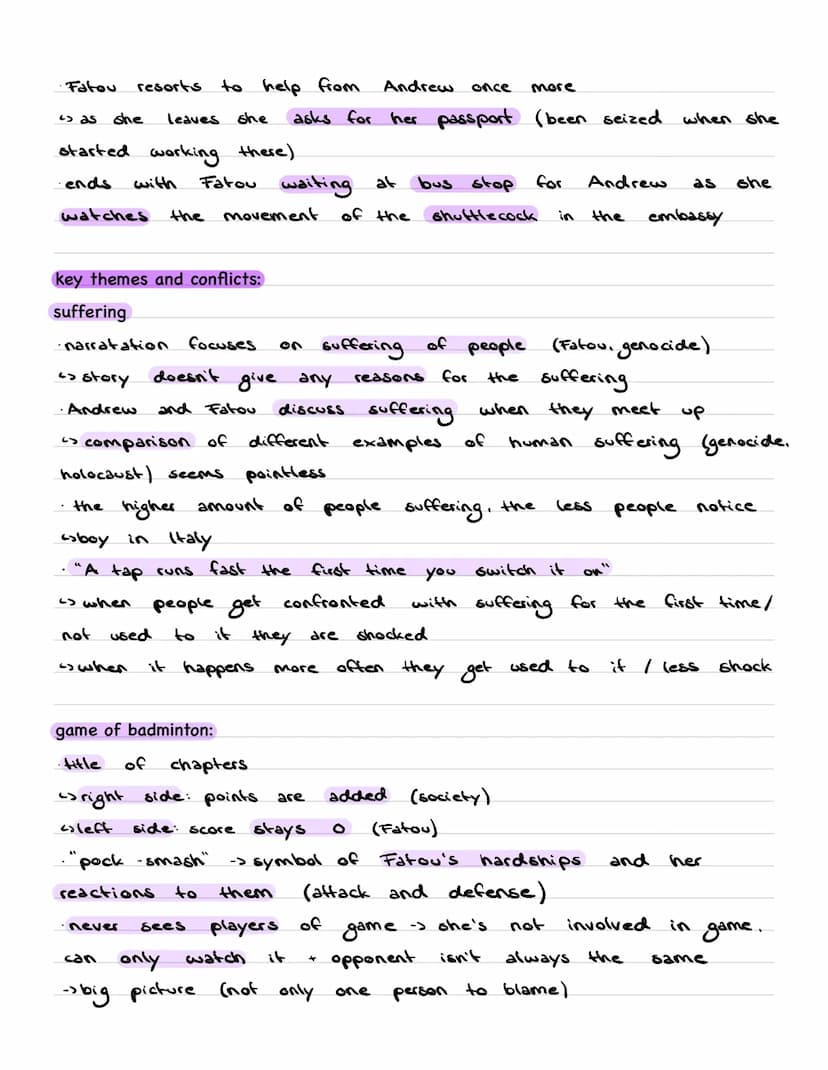 · Fatou resorts to help from Andrew once more
↳ as she leaves she asks for her passport (been seized when she
started working there)
· ends with Fatou waiting at bus stop for Andrew as she
watches the movement of the shuttlecock in the embassy
key themes and conflicts:
suffering
· narratation focuses on suffering of people (Fatou, genocide)
↳ story doesn't give any reasons for the suffering
· Andrew and Fatou discuss suffering when they meet up
↳ comparison of different examples of human suffering (genocide,
holocaust) seems pointless
· the higher amount of people suffering, the less people notice
↳ boy in Italy
· "A tap runs fast the first time you switch it on"
↳ when people get confronted with suffering for the first time/
not used to it they are shocked
↳ when it happens more often they get used to it / less shock
game of badminton:
· title of chapters
↳ right side: points are added (society)
↳ left side: score stays 0 (Fatou)
· "pock -smash" -> symbol of Fatou's hardships and her
reactions to them (attack and defense)
· never sees players of game -> she's not involved in game,
can only watch it + opponent isn't always the same
-> big picture (not only one person to blame)